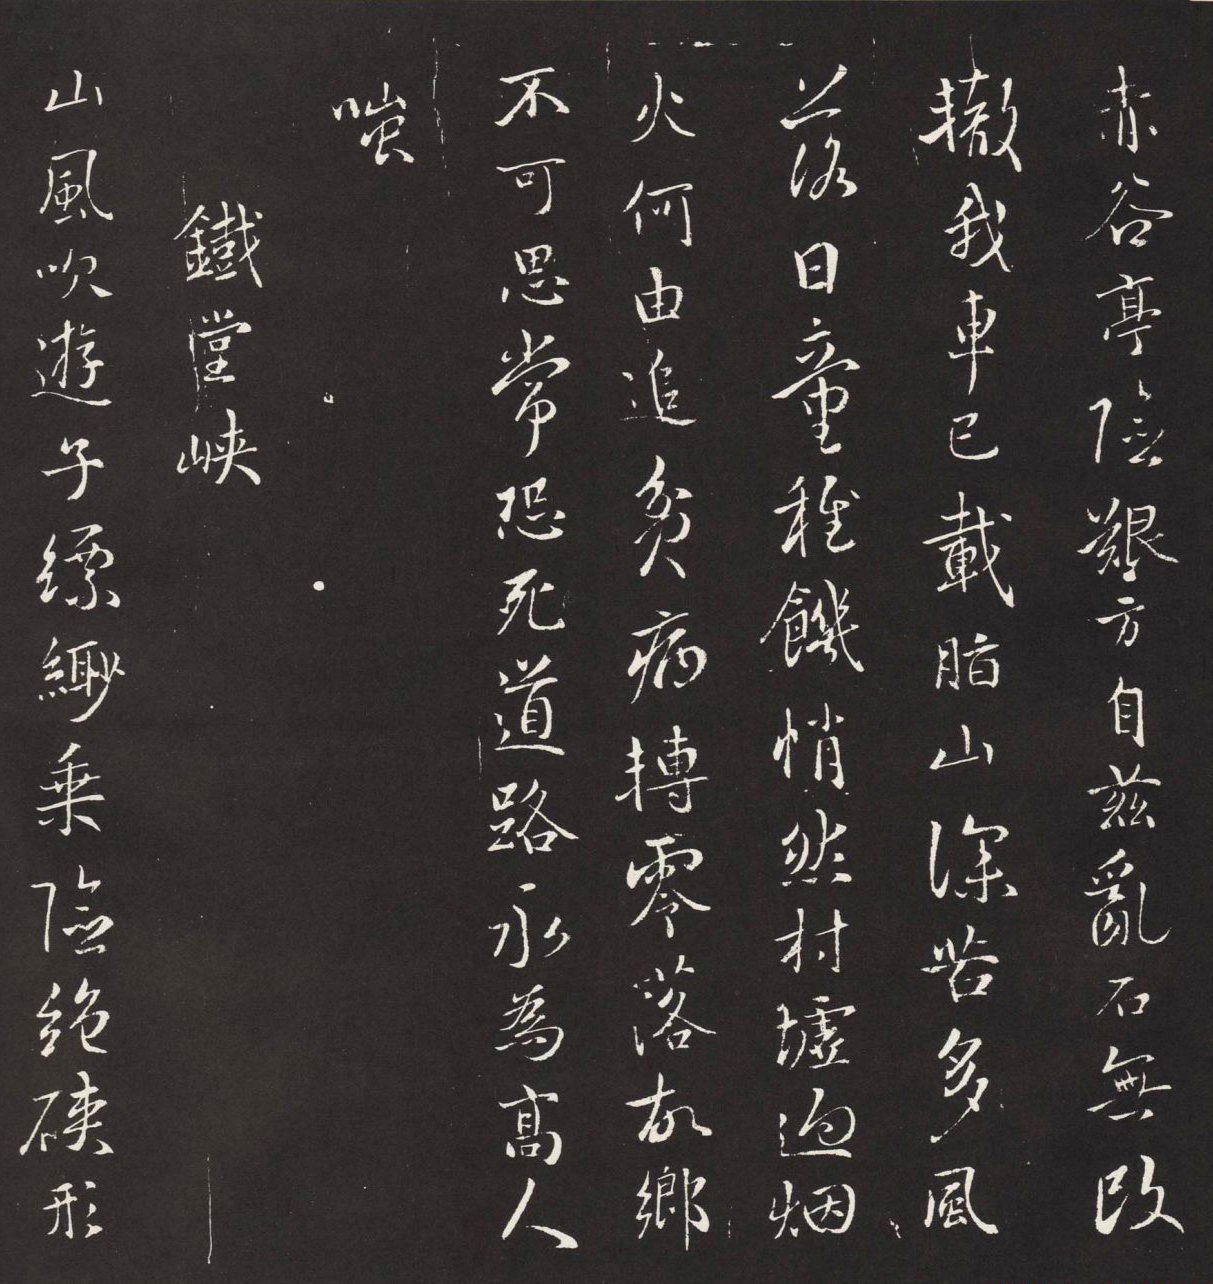 赤谷亭險艱方自茲亂石無改
轍我車已載脂山深苦多風
落日童稚饑悄然村墟迥烟
火何由追貧病轉零落故鄉
不可思常恐死道路永為高人
嗤
鐵堂峽
山風吹遊子縹緲乘險絕硤形